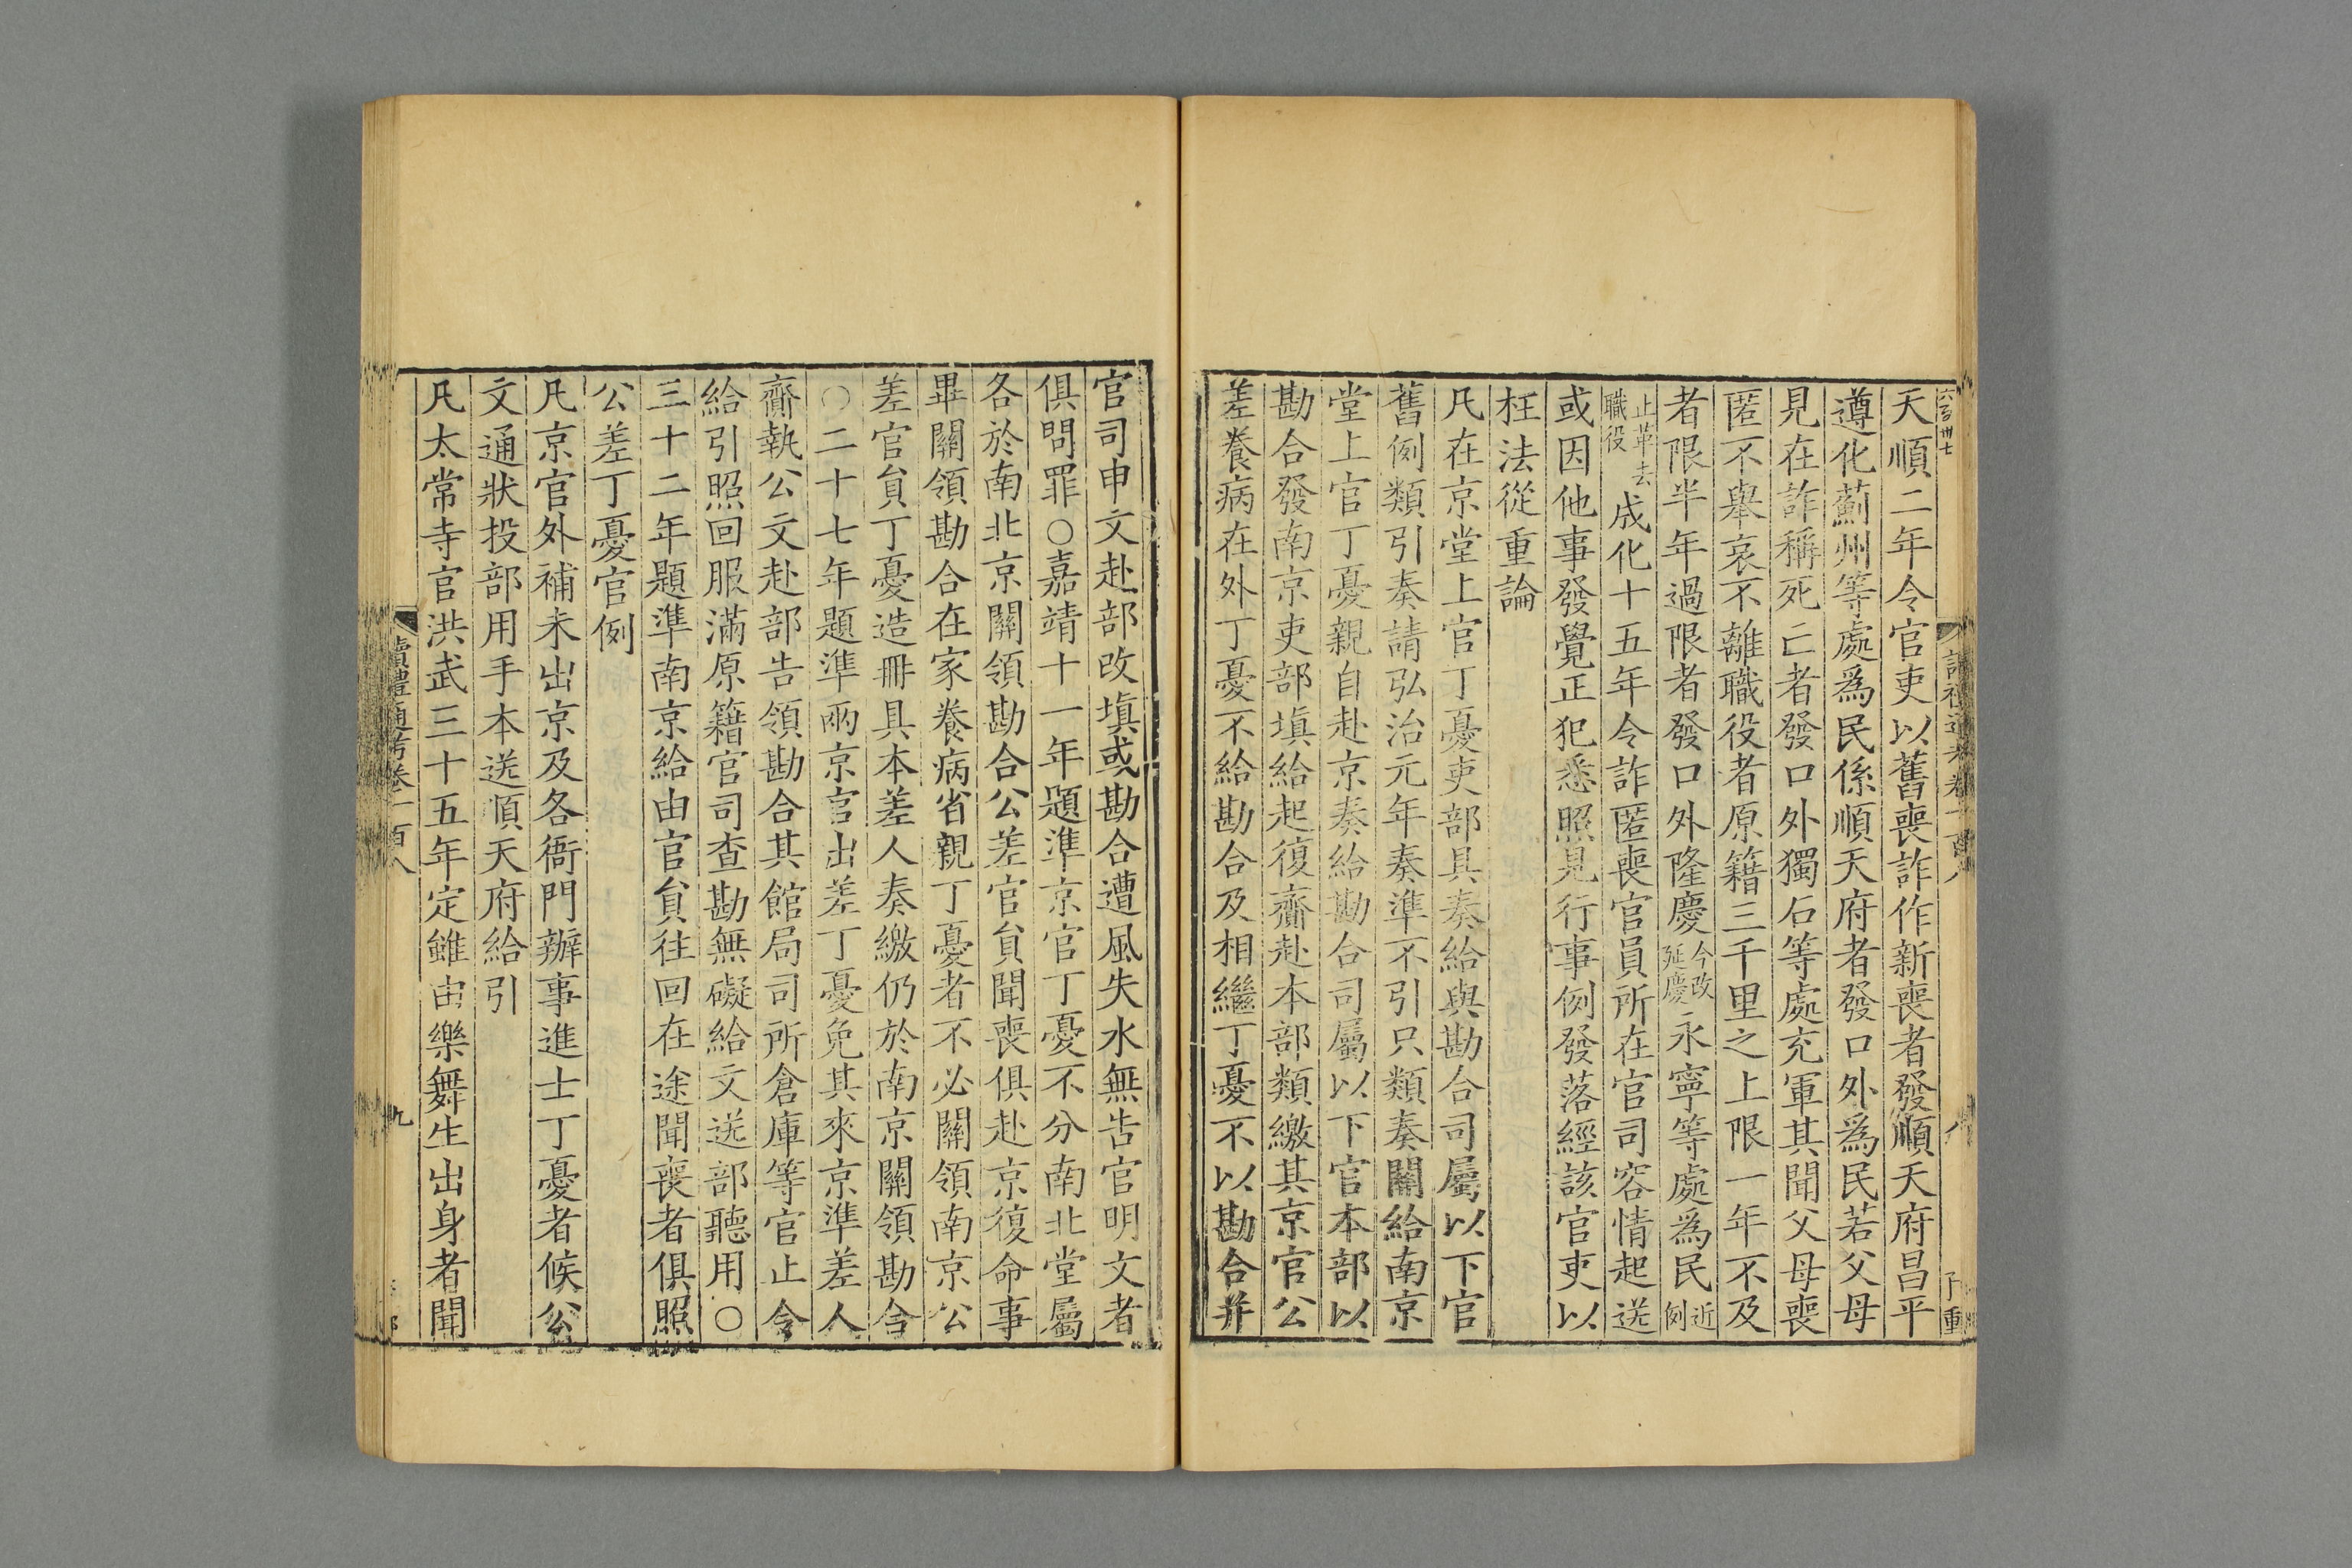 天順二年令官吏以舊喪詐作新喪者發順天府昌平
遵化薊州等處爲民係順天府者發口外爲民若父母
見在詐稱死亡者發口外獨石等處充軍其聞父母喪
匿不舉哀不離職役者原籍三千里之上限一年不及
者限半年過限者發口外隆慶今改延慶永寧等處爲民近例
止革去職役成化十五年令詐匿喪官員所在官司容情起送
或因他事發覺正犯悉照見行事例發落經該官吏以
枉法從重論
凡在京堂上官丁憂吏部具奏給與勘合司屬以下官
舊例類引奏請弘治元年奏準不引只類奏關給南京
堂上官丁憂親自赴京奏給勘合司屬以下官本部以
勘合發南京吏部塡給起復齎赴本部類繳其京官公
差養病在外丁憂不給勘合及相繼丁憂不以勘合并
官司申文赴部改塡或勘合遭風失水無告官明文者
俱問罪○嘉靖十一年題準京官丁憂不分南北堂屬
各於南北京關領勘合公差官員聞喪俱赴京復命事
畢關領勘合在家養病省親丁憂者不必關領南京公
差官員丁憂造冊具本差人奏繳仍於南京關領勘合
○二十七年題準兩京官出差丁憂免其來京準差人
齎執公文赴部告領勘合其館局司所倉庫等官止令
給引照回服滿原籍官司查勘無礙給文送部聽用○
三十二年題準南京給由官員往回在途聞喪者俱照
公差丁憂官例
凡京官外補未出京及各衙門辦事進士丁憂者候公
文通狀投部用手本送順天府給引
凡太常寺官洪武三十五年定雖由樂舞生出身者聞
讀禮通考卷一百八
九